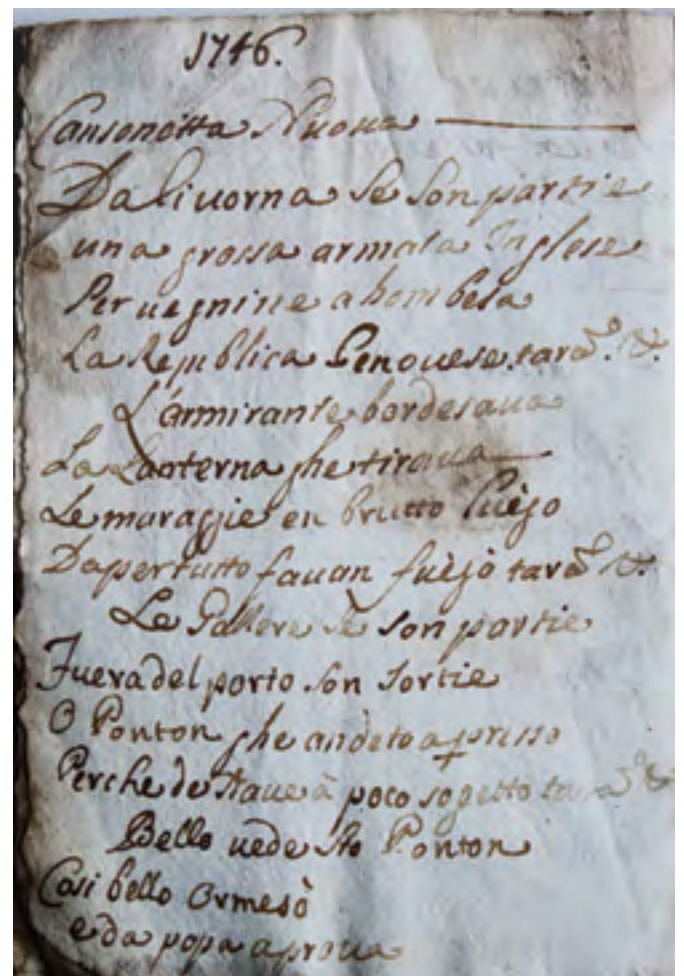 1746.
Cansonetta Nuoua
Da Liuorna se son partie
una grossa armata Inglese
Per uegnine a bombesa
La Republica Genouese. tarã. &.
L'armirante bordesaua
La Lanterna ghe tiraua
Le muraggie en brutto luègo
Dapertutto fauan fuègo tarã &.
Le Gallere se son partie
Fuera del porto son sortie
O Ponton ghe andeto apresso
Perche de staue à poco sogetto tarã &
Bello uede sto Ponton
Cosi bello Ormesò
e da popa a proua